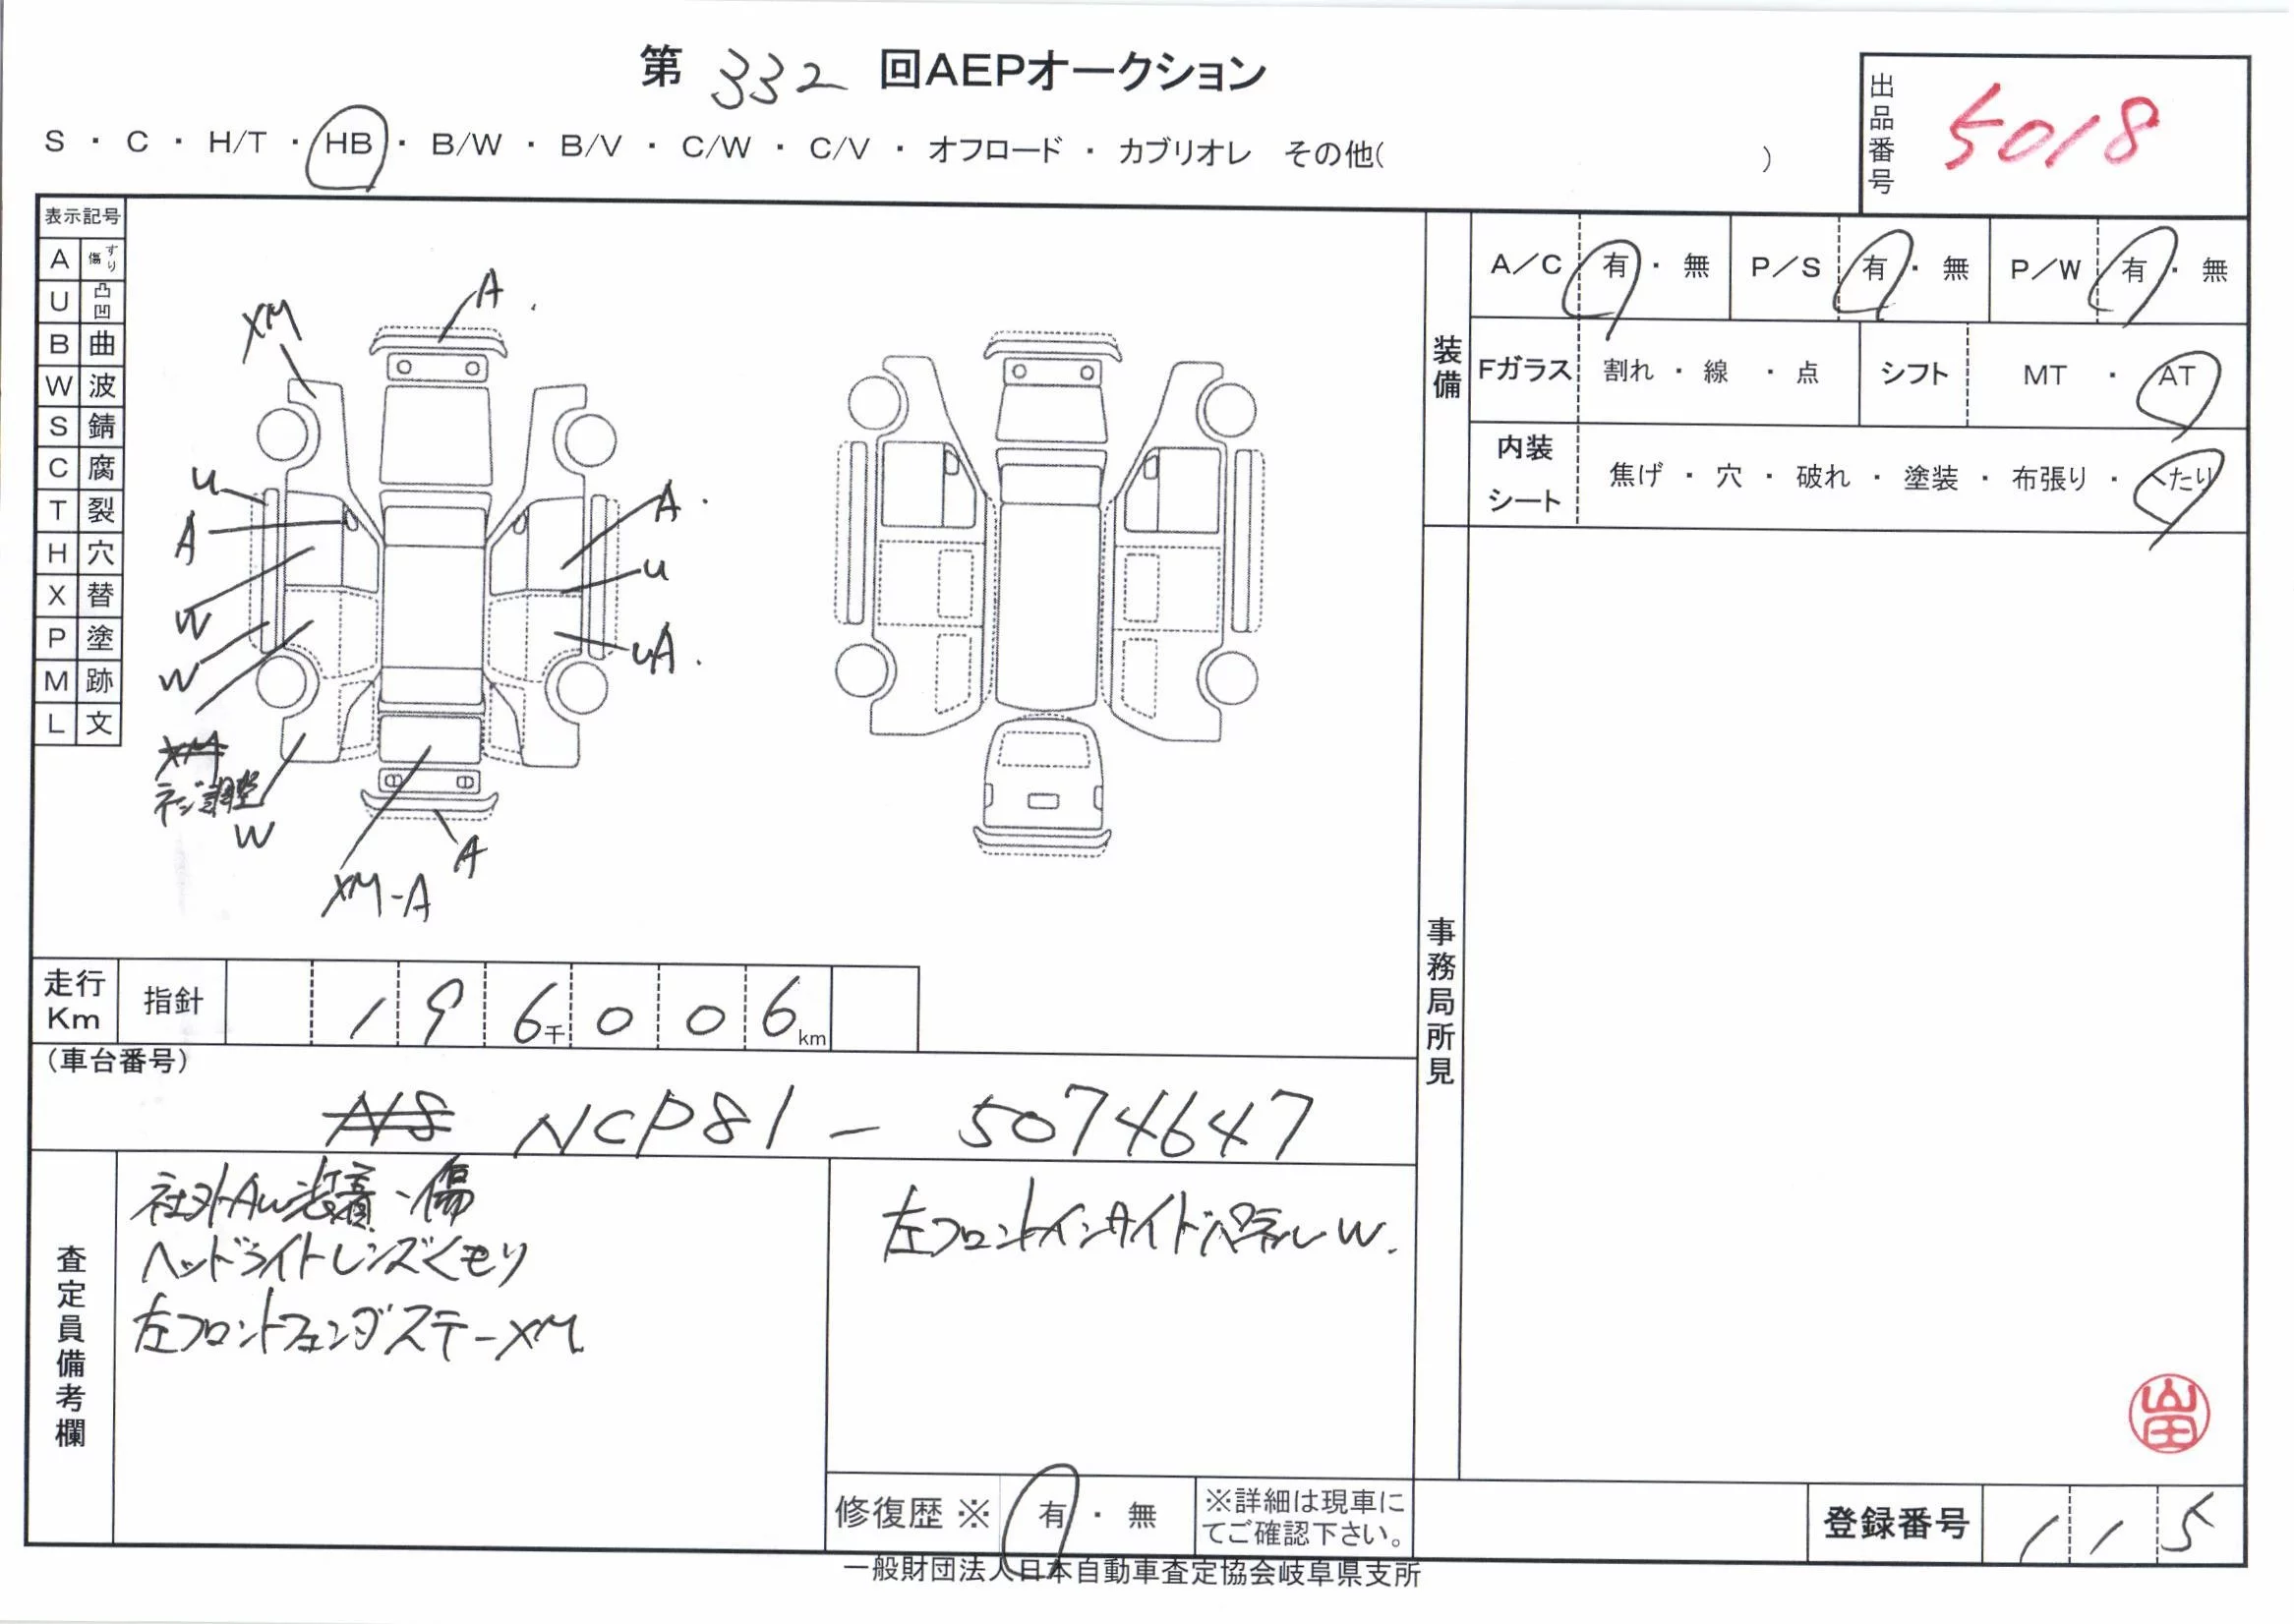 第 332 回AEPオークション
S ・ C ・ H/T ・ HB ・ B/W ・ B/V ・ C/W ・ C/V ・ オフロード ・ カブリオレ その他( )
出品番号 5018
表示記号
A すり傷
U 凸凹
B 曲
W 波
S 錆
C 腐
T 裂
H 穴
X 替
P 塗
M 跡
L 文
A
XM
U
A
A
U
W
UA
W
XM
ネジ調整
W
A
XM-A
装備
A/C 有 ・ 無 P/S 有 ・ 無 P/W 有 ・ 無
Fガラス 割れ ・ 線 ・ 点 シフト MT ・ AT
内装シート 焦げ ・ 穴 ・ 破れ ・ 塗装 ・ 布張り ・ へたり
事務局所見
走行Km 指針 1 9 6千 0 0 6km
(車台番号)
N8 NCP81 - 5074647
査定員備考欄
社外AW装着・傷
ヘッドライトレンズくもり
左フロントフェンダステーXM
左フロントインサイドパネルW.
修復歴 ※ 有 ・ 無
※詳細は現車に
てご確認下さい。
登録番号 1 1 5
一般財団法人日本自動車査定協会岐阜県支所